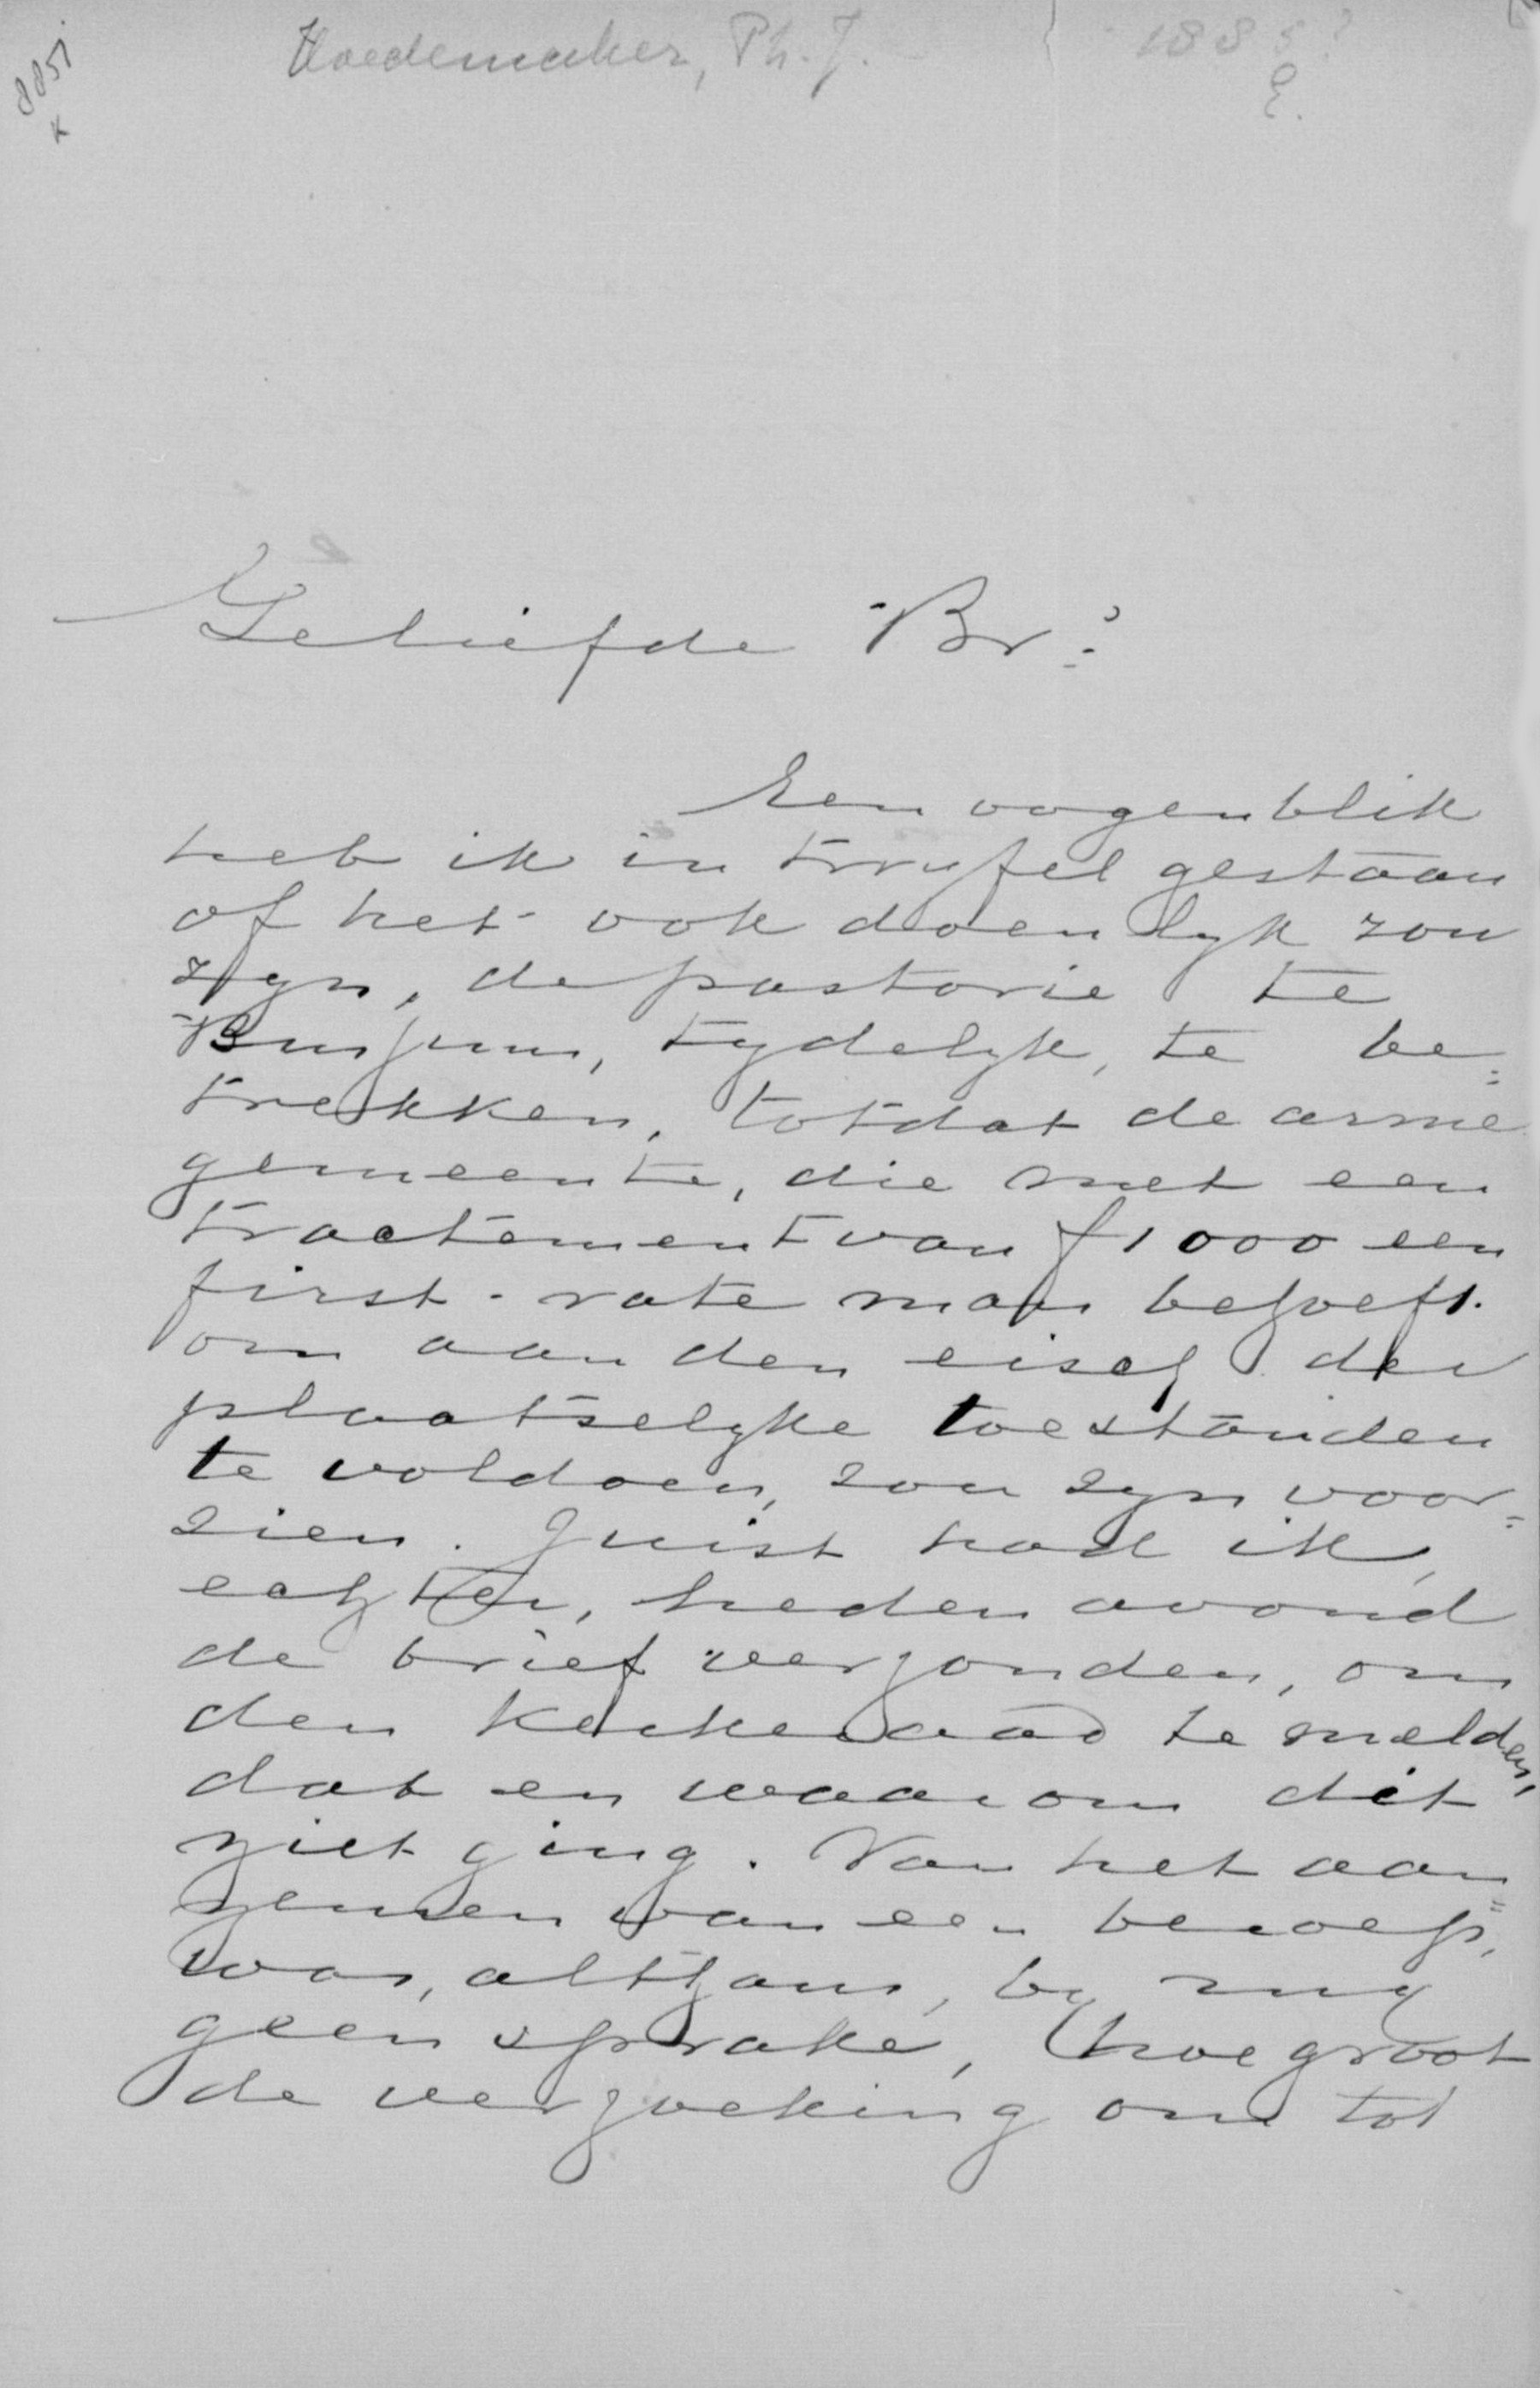 8851
K
Hoedemaker, Ph. J. 1885?
Geliefde Br:
Een oogenblik
heb ik in twyfel gestaan
of het ook doenlyk zou
zyn, de pastorie te
Bunjum, tydelyk, te be=
trekken, totdat de arme
gemeente, die met een
tractement van f 1000 een
first-rate man behoeft
om aan den eisch der
plaatselyke toestanden
te voldoen, zou zyn voor=
zien. Juist had ik,
echter, heden avond
de brief verzonden, om
den kerkeraad te melden,
dat en waarom dit
niet ging. Van het aan=
nemen van een beroep,
was, althans, by my
geen sprake, hoe groot
de verzoeking om tot